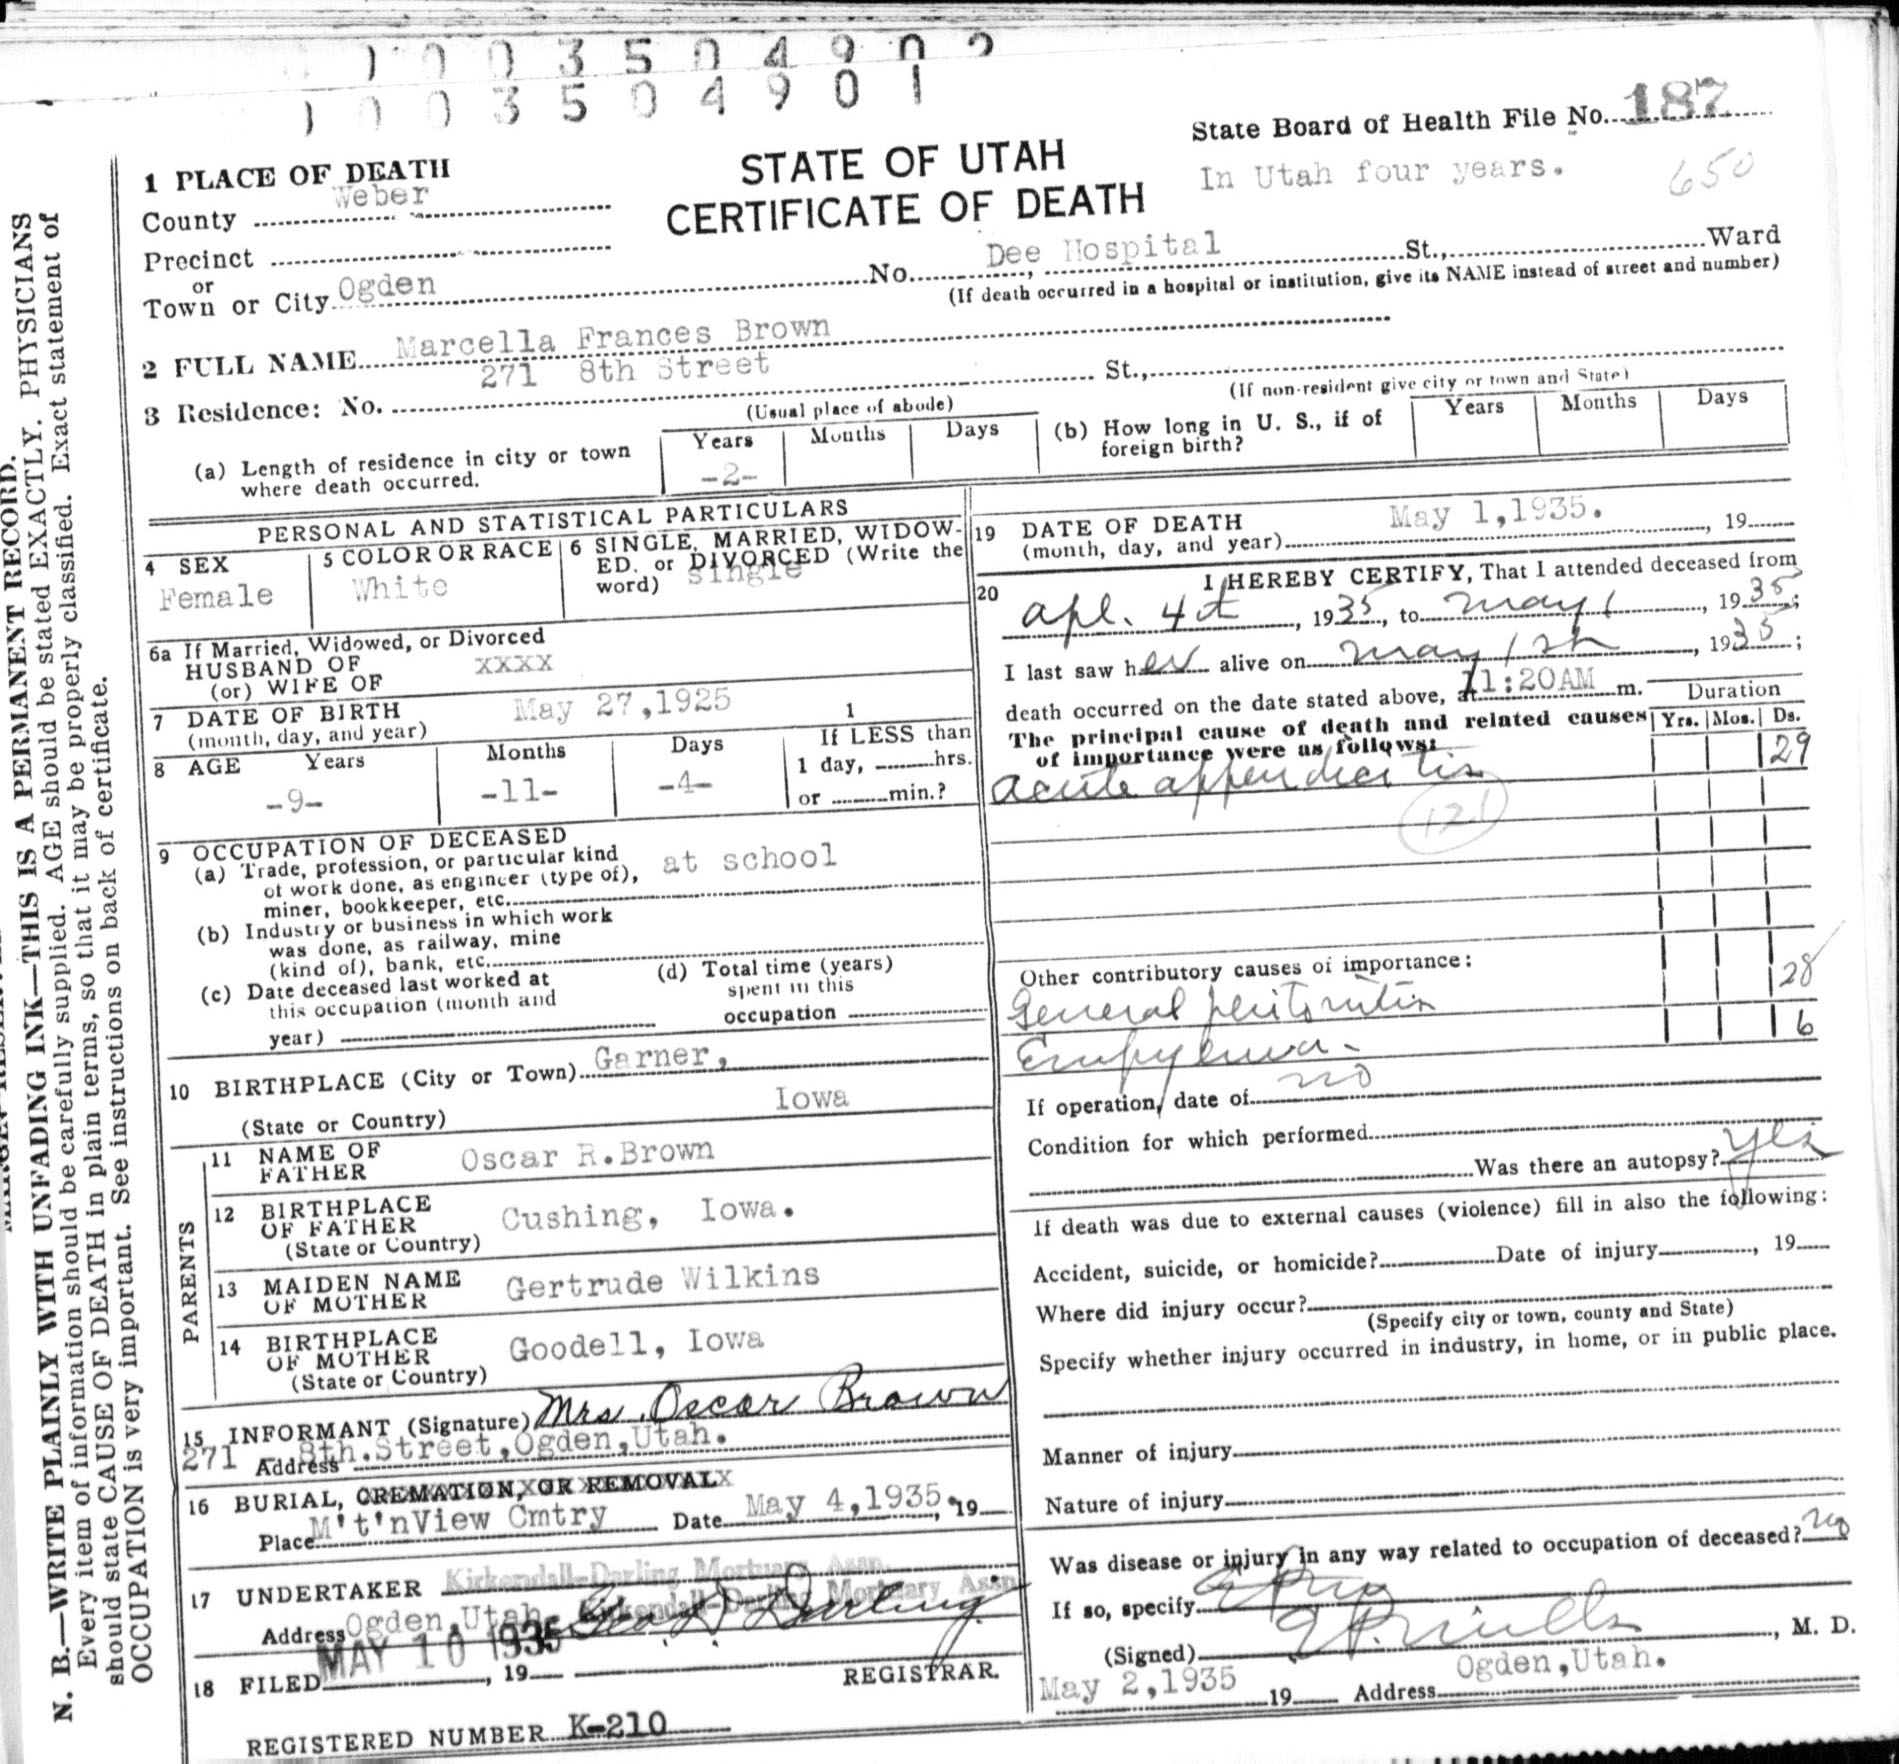 1 0 0 3 5 0 4 9 0 2
1 0 0 3 5 0 4 9 0 1
State Board of Health File No. 187
STATE OF UTAH
CERTIFICATE OF DEATH
In Utah four years. 650
1 PLACE OF DEATH
County Weber
Precinct
or
Town or City Ogden No. Dee Hospital St., Ward
(If death occurred in a hospital or institution, give its NAME instead of street and number)
2 FULL NAME Marcella Frances Brown
3 Residence: No. 271 8th Street St.,
(Usual place of abode) (If non-resident give city or town and State)
(a) Length of residence in city or town where death occurred. Years -2- Months Days
(b) How long in U. S., if of foreign birth? Years Months Days
PERSONAL AND STATISTICAL PARTICULARS
4 SEX
Female
5 COLOR OR RACE
White
6 SINGLE, MARRIED, WIDOW-
ED. or DIVORCED (Write the
word) single
6a If Married, Widowed, or Divorced
HUSBAND OF
(or) WIFE OF xxxx
7 DATE OF BIRTH May 27,1925 1
(month, day, and year)
8 AGE Years Months Days If LESS than
-9- -11- -4- 1 day, hrs.
or min.?
9 OCCUPATION OF DECEASED
(a) Trade, profession, or particular kind
of work done, as engineer (type of), at school
miner, bookkeeper, etc.
(b) Industry or business in which work
was done, as railway, mine
(kind of), bank, etc.
(c) Date deceased last worked at
this occupation (month and
year)
(d) Total time (years)
spent in this
occupation
10 BIRTHPLACE (City or Town) Garner,
(State or Country) Iowa
PARENTS
11 NAME OF
FATHER Oscar R.Brown
12 BIRTHPLACE
OF FATHER Cushing, Iowa.
(State or Country)
13 MAIDEN NAME
OF MOTHER Gertrude Wilkins
14 BIRTHPLACE
OF MOTHER Goodell, Iowa
(State or Country)
15 INFORMANT (Signature) Mrs. Oscar Brown
271 Address 8th.Street,Ogden,Utah.
16 BURIAL, CREMATION, OR REMOVAL
Place M't'nView Cmtry Date May 4,1935. , 19
17 UNDERTAKER Kirkendall-Darling Mortuary Assn.
Kirkendall-Darling Mortuary Assn
Address Ogden,Utah Geo D Darling
18 FILED MAY 10 1935 , 19 REGISTRAR.
REGISTERED NUMBER K-210
19 DATE OF DEATH May 1,1935. , 19
(month, day, and year)
20 I HEREBY CERTIFY, That I attended deceased from
apl. 4th, 1935, to may 1, 1935;
I last saw her alive on may 1st, 1935;
death occurred on the date stated above, at 11:20AM m.
Duration
The principal cause of death and related causes Yrs. Mos. Ds.
of importance were as follows:
acute appendicitis 29
121
Other contributory causes of importance:
General peritonitis 28
Empyema- 6
If operation, date of no
Condition for which performed
Was there an autopsy? yes
If death was due to external causes (violence) fill in also the following:
Accident, suicide, or homicide? Date of injury , 19
Where did injury occur?
(Specify city or town, county and State)
Specify whether injury occurred in industry, in home, or in public place.
Manner of injury
Nature of injury
Was disease or injury in any way related to occupation of deceased? no
If so, specify
(Signed) Mills, M. D.
May 2,1935 19 Address Ogden,Utah.
N. B.—WRITE PLAINLY WITH UNFADING INK—THIS IS A PERMANENT RECORD.
Every item of information should be carefully supplied. AGE should be stated EXACTLY. PHYSICIANS
should state CAUSE OF DEATH in plain terms, so that it may be properly classified. Exact statement of
OCCUPATION is very important. See instructions on back of certificate.